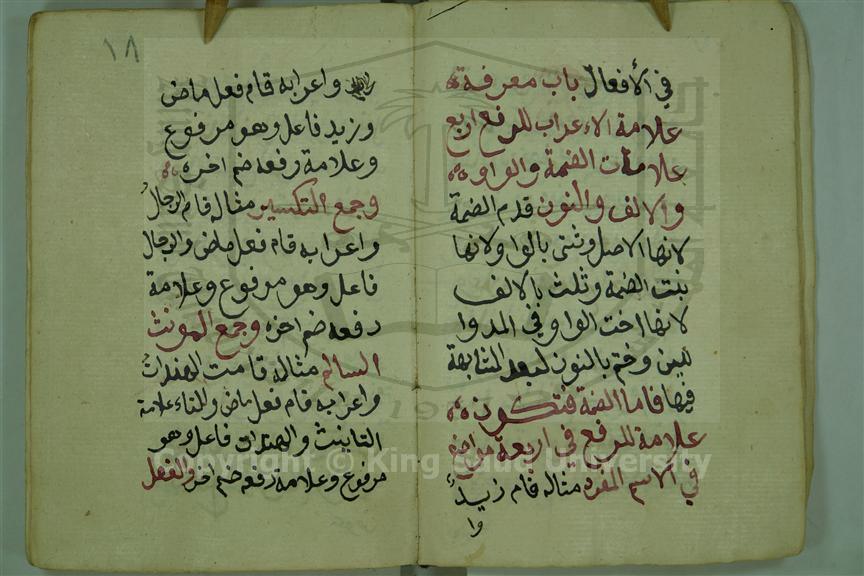 في الأفعال باب معرفة
علامة الاعراب للرفع اربع
علامات الضمة والواو
والالف والنون قدم الضمة
لانها الاصل وثنى بالواو لانها
بنت الضمة وثلث بالالف
لانها اخت الواو في المد وا
للين وختم بالنون لبعد الشابهة
فيها فاما الضمة فتكون
علامة للرفع في اربعة مواضع
في الاسم المفرد مثاله قام زيدٌ
وا
١٨
واعرابه قام فعل ماض
وزيد فاعل وهو مرفوع
وعلامة رفعه ضم اخره
وجمع التكسير مثاله قام الرجالُ
واعرابه قام فعل ماض والرجال
فاعل وهو مرفوع وعلامة
رفعه ضم اخره وجمع المونث
السالم مثاله قامت الهندات
واعرابه قام فعل ماض والتاء علامة
التانيث والهندات فاعل وهو
مرفوع وعلامة رفعه ضم اخره والفعل
Copyright © King Saud University